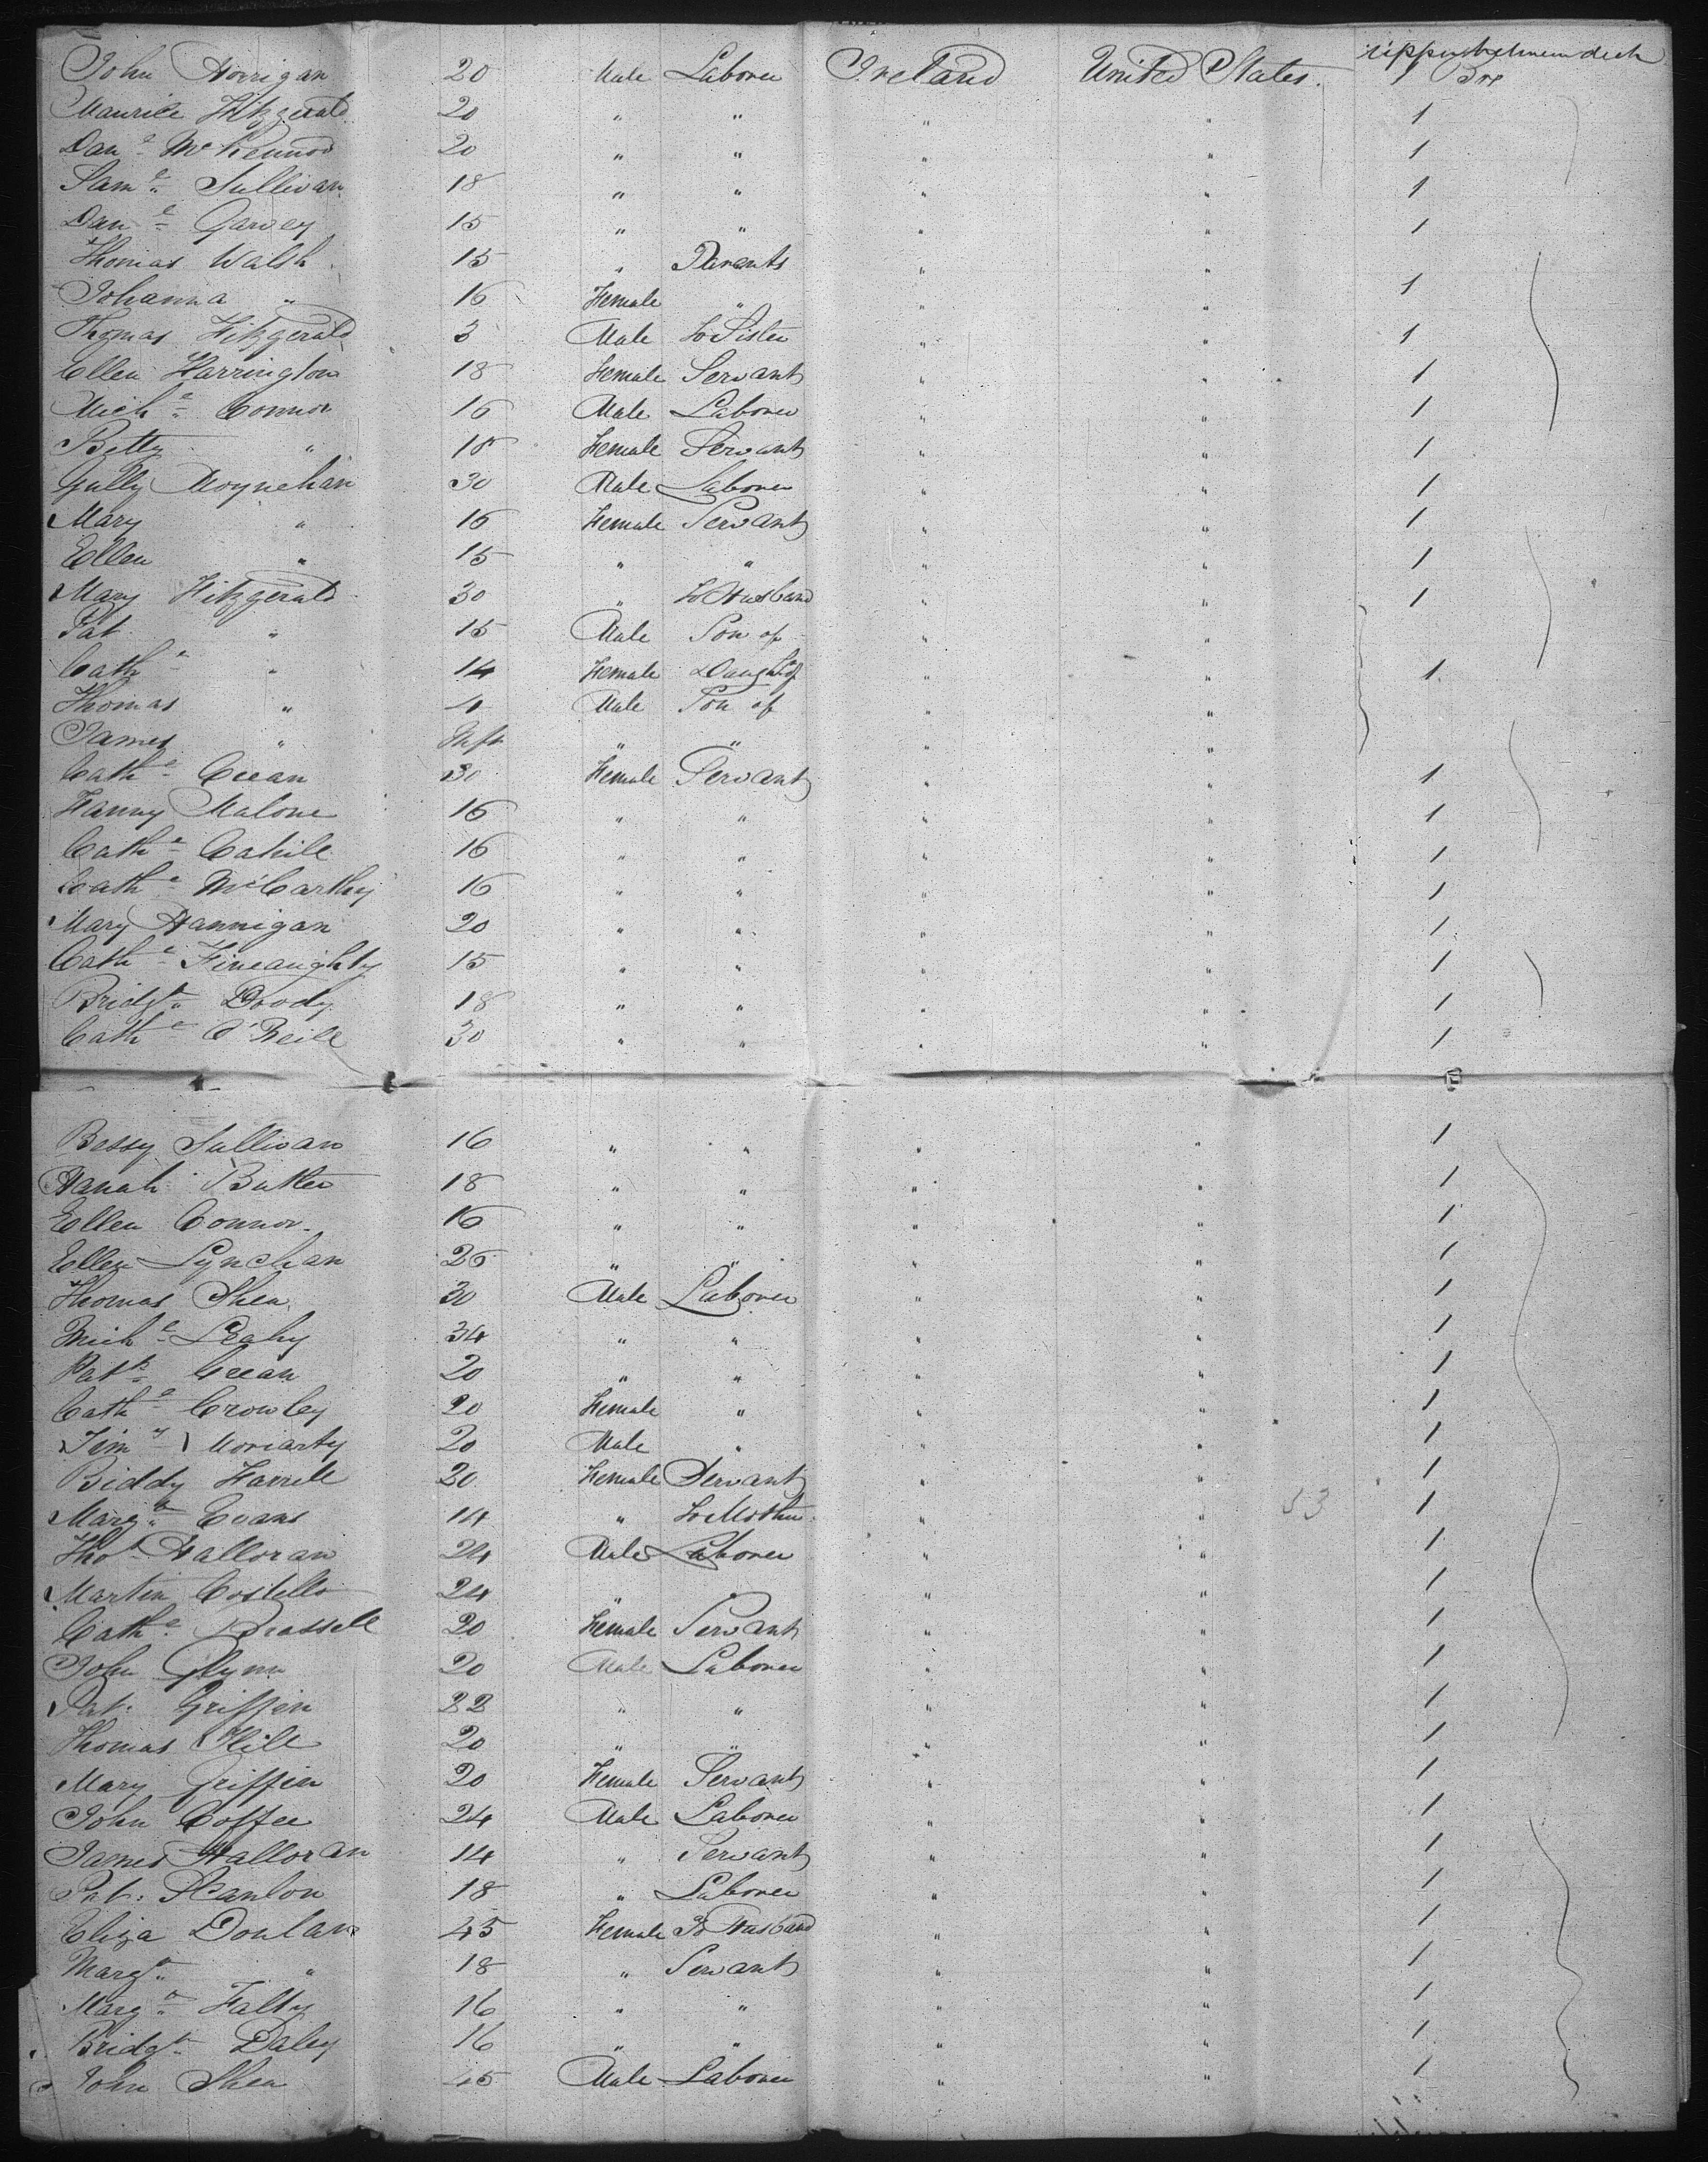 John Horrigan 20 Male Laborer Ireland United States. Upper between deck One
Maurice Fitzgerald 20 " " " " 1
Danl McKennor 20 " " " " 1
Saml Sullivan 18 " " " " 1
Danl Garvey 15 " " " " 1
Thomas Walsh 15 " Parents " "
Johanna " 16 Female " " " 1
Thomas Fitzgerald 3 Male to Sister " " 1
Ellen Harrington 18 Female Servant " " 1
Michl Connor 16 Male Laborer " " 1
Betty " 18 Female Servant " " 1
Gully Moynehan 30 Male Laborer " " 1
Mary " 16 Female Servant " " 1
Ellen " 15 " " " " 1
Mary Fitzgerald 30 " to Husband " " 1
Pat " 15 Male Son of " "
Cathe " 14 Female Daught of " " 1
Thomas " 4 Male Son of " "
James " Inft " " " "
Cathe Creean 30 Female Servant " " 1
Fanny Malone 16 " " " " 1
Cathe Cahill 16 " " " " 1
Cathe McCarthy 16 " " " " 1
Mary Hannigan 20 " " " " 1
Cathe Fineaughty 15 " " " " 1
Bridgt Doody 18 " " " " 1
Cathe O'Neill 30 " " " " 1
Bessy Sullivan 16 " " " " 1
Hanah Butler 18 " " " " 1
Ellen Connor. 16 " " " " 1
Ellen Lynchan 26 " " " " 1
Thomas Shea 30 Male Laborer " " 1
Michl Leahy 34 " " " " 1
Patk Creean 20 " " " " 1
Cathe Crowley 20 Female " " " 1
Timy Moriarty 20 Male " " " 1
Biddy Farrell 20 Female Servant " " 1
Margt Evans 14 " to Mother " " 53 1
Thos Halloran 24 Male Laborer " " 1
Martin Costello 24 " " " 1
Cathe Brassell 20 Female Servant " " 1
John Glynn 20 Male Laborer " " 1
Pat. Griffin 22 " " " " 1
Thomas Hill 20 " " " " 1
Mary Griffin 20 Female Servant " " 1
John Coffee 24 Male Laborer " " 1
James Halloran 14 " Servant " " 1
Pat. Scanlon 18 " Laborer " " 1
Eliza Donlan 45 Female To Husband " " 1
Margt " 18 " Servant " " 1
Margt Falty 16 " " " " 1
Bridgt Daley 16 " " " " 1
John Shea 45 Male Laborer " " 1